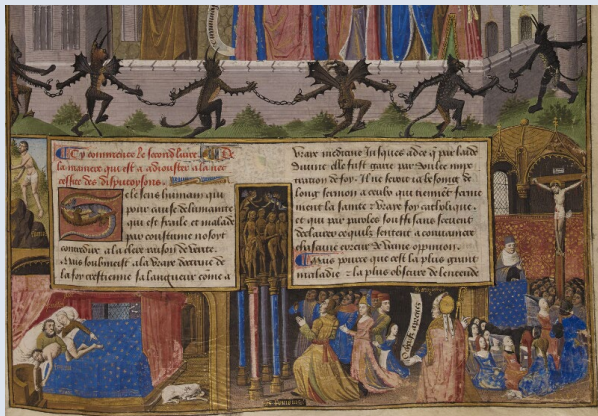 Cy commence le second liure De
la maniere qui est a adiouster a la ne
cessite des disputoysons.
Se le sens humain qui
pour cause de humanite
qui est fraile et malade
par coustume nosoit
contredire a la clere raison de verite.
Mais soubmeist a la vraye doctrine de
la foy crestienne sa langueur come a
vraye medecine Jusques adce q̄ par laide
diuine elle feust garie par seule impe
tracion de foy. Il ne seroit ia besoing de
long sermon a ceulx qui tiennent ferme
ment la sainte & vraye foy catholique.
et qui par paroles souffisans sceuent
declairer ce quilz sentent a conuaincre
chascune erreur & vaine opinion.
Mais pource que cest la plus grant
maladie & la plus obscure de lentende